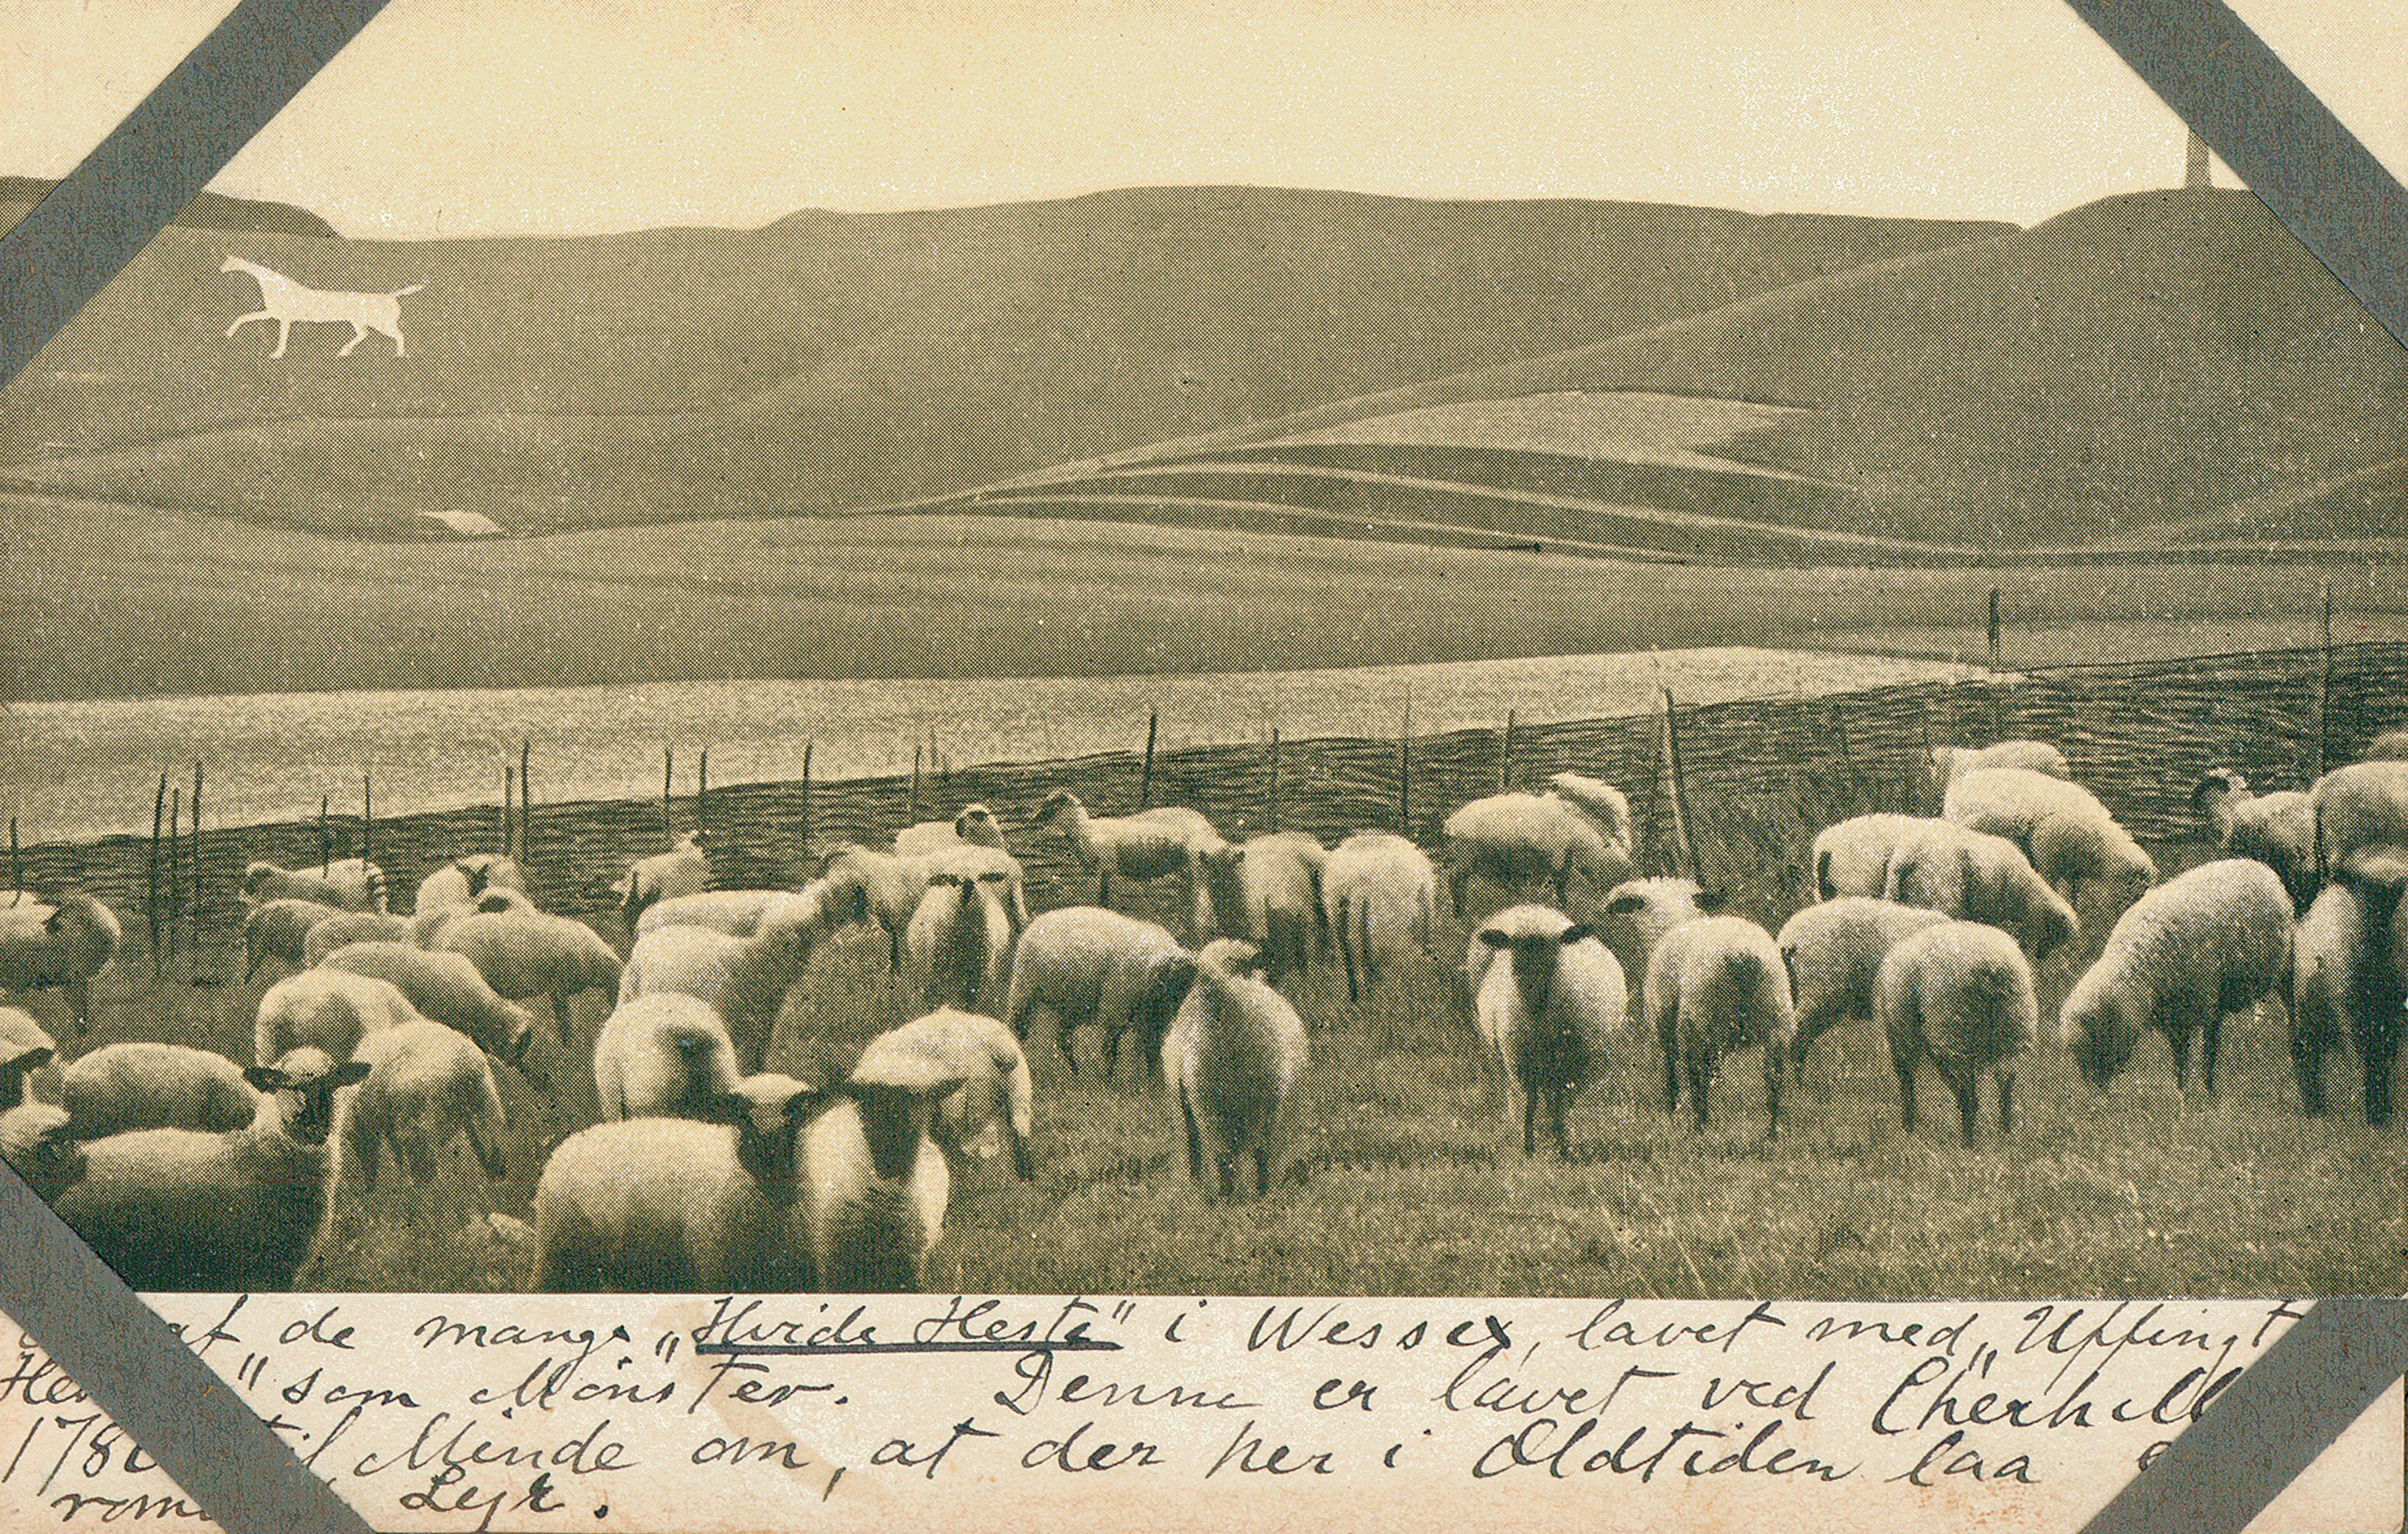 af de mange „Hvide Heste" i Wessex, lavet med „Uffingt
" som Mønster. Denne er lavet ved Cherhill
178 til Minde om, at der her i Oldtiden laa
Lejr.